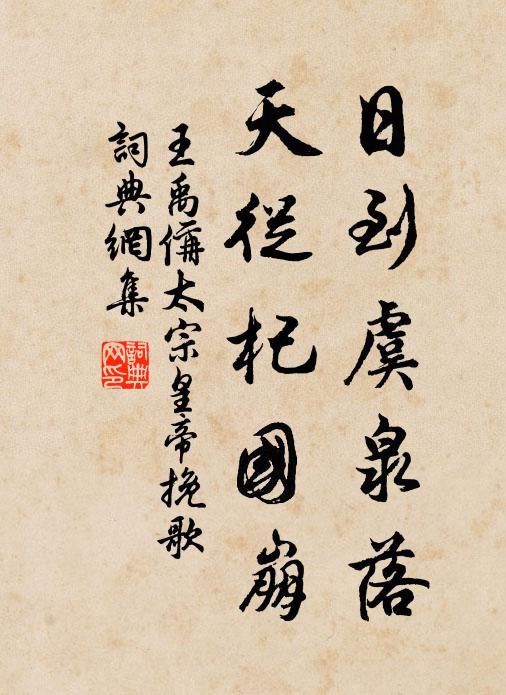 日到虞泉落
天從杞國崩
王禹偁太宗皇帝挽歌
詞典網集
詞典
网印